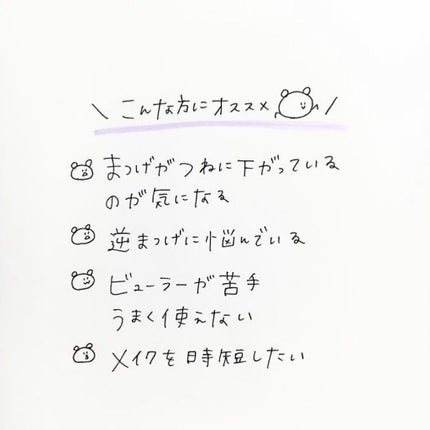 \ こんな方にオススメ /
まつげがつねに下がっている
のが気になる
逆まつげに悩んでいる
ビューラーが苦手
うまく使えない
メイクを時短したい